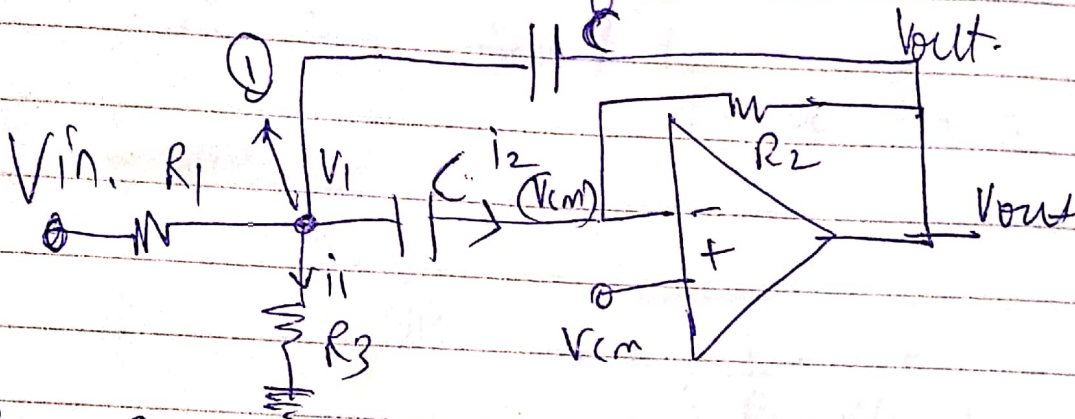 C
Vout.
①
R2
Vin.
R1
V1
C
i2
(Vcm)
-
+
Vout
i1
R3
Vcm